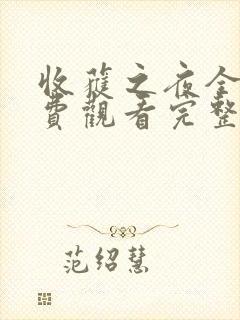 收穫之夜全
費觀看完整
范绍慧